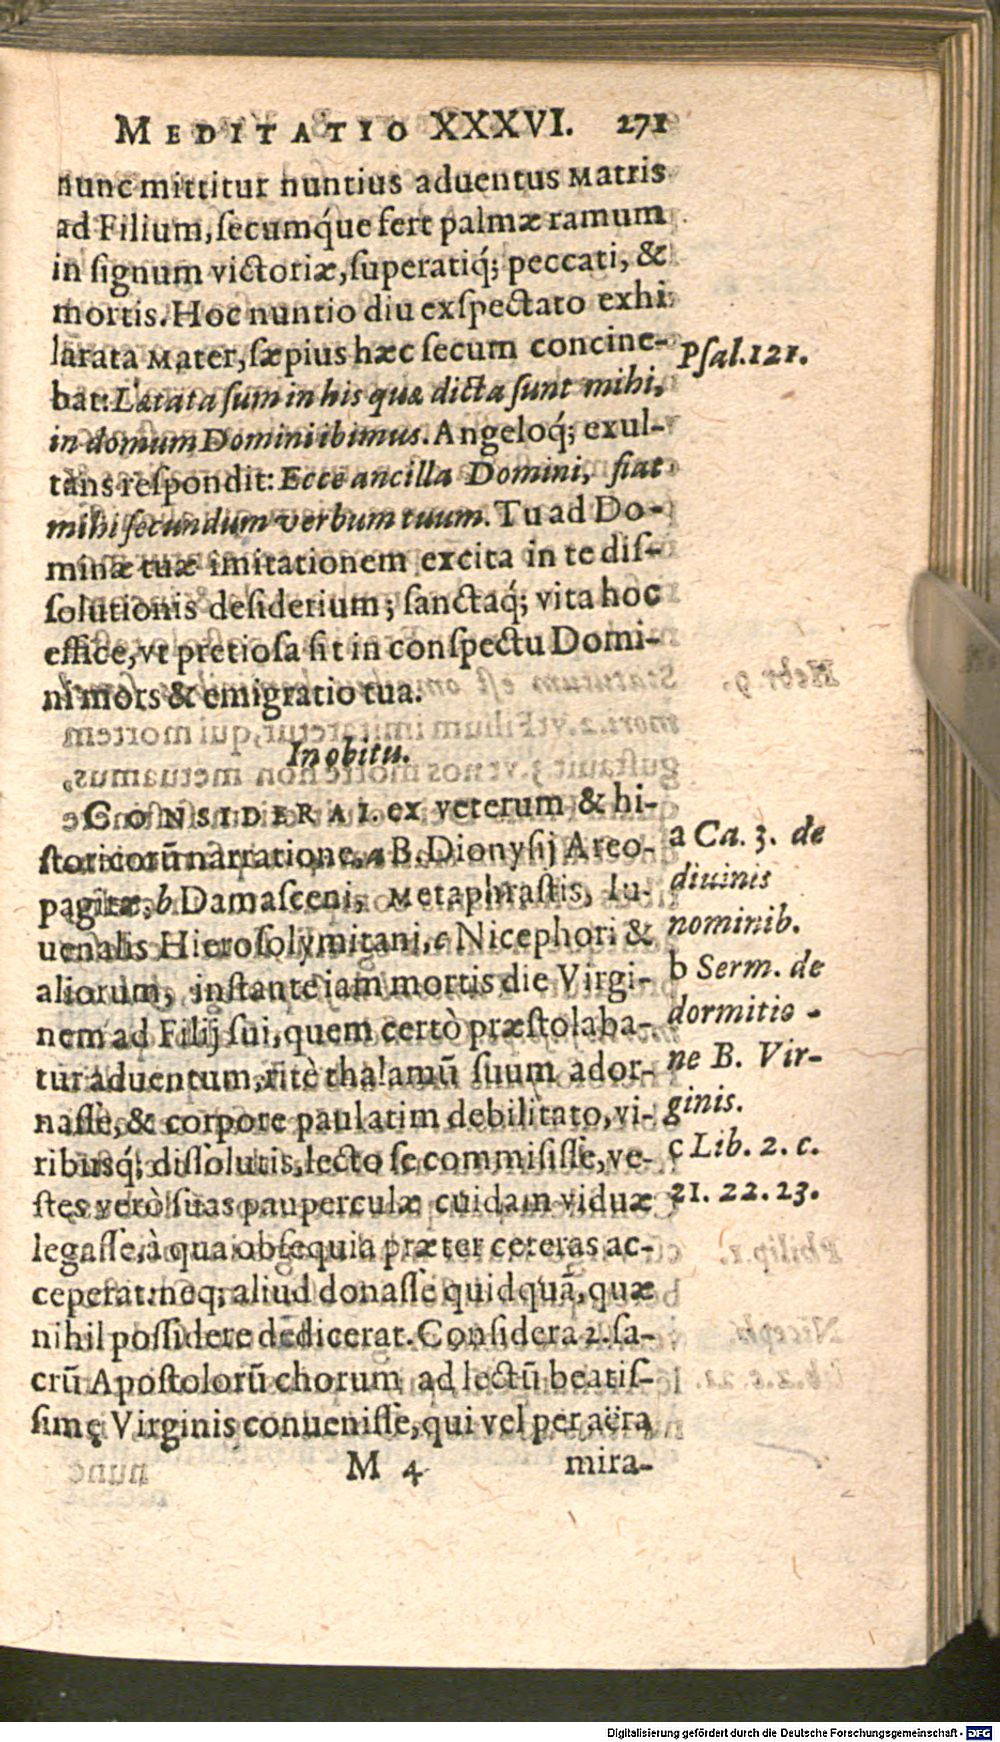 MEDITATIO XXXVI. 271
nunc mittitur nuntius aduentus Matris
ad Filium, ſecumq́ue fert palmæ ramum
in ſignum victoriæ, ſuperatiq́; peccati, &
mortis. Hoc nuntio diu exſpectato exhi
larata Mater, ſæpius hæc ſecum concine-
bat: Lætata ſum in his quæ dicta ſunt mihi,
in domum Domini ibimus. Angeloq́; exul-
tans reſpondit: Ecce ancilla Domini, fiat
mihi ſecundum verbum tuum. Tu ad Do-
minæ tuæ imitationem excita in te diſ-
ſolutionis deſiderium; ſanctaq́; vita hoc
effice, vt pretioſa ſit in conſpectu Domi-
ni mors & emigratio tua.
Psal. 121.
In obitu.
CONSIDERA 1. ex veterum & hi-
ſtoricorū narratione, a B. Dionyſij Areo-
pagitæ, b Damaſceni, Metaphraſtis, Iu-
uenalis Hieroſolymitani, c Nicephori &
aliorum, inſtante iam mortis die Virgi-
nem ad Filij ſui, quem certò præſtolaba-
tur aduentum, ritè thalamū ſuum ador-
naſſe, & corpore paulatim debilitato, vi-
ribusq́; diſſolutis, lecto ſe commiſiſſe, ve-
ſtes verò ſuas pauperculæ cuidam viduæ
legaſſe, à qua obſequia præter ceteras ac-
ceperat: neq; aliud donaſſe quidquā, quæ
nihil poſſidere dedicerat. Conſidera 2. ſa-
crū Apoſtolorū chorum ad lectū beatiſ-
ſimę Virginis conueniſſe, qui vel per aëra
a Ca. 3. de
diuinis
nominib.
b Serm. de
dormitio-
ne B. Vir-
ginis.
c Lib. 2. c.
21. 22. 23.
M 4 mira-
Digitalisierung gefördert durch die Deutsche Forschungsgemeinschaft - DFG